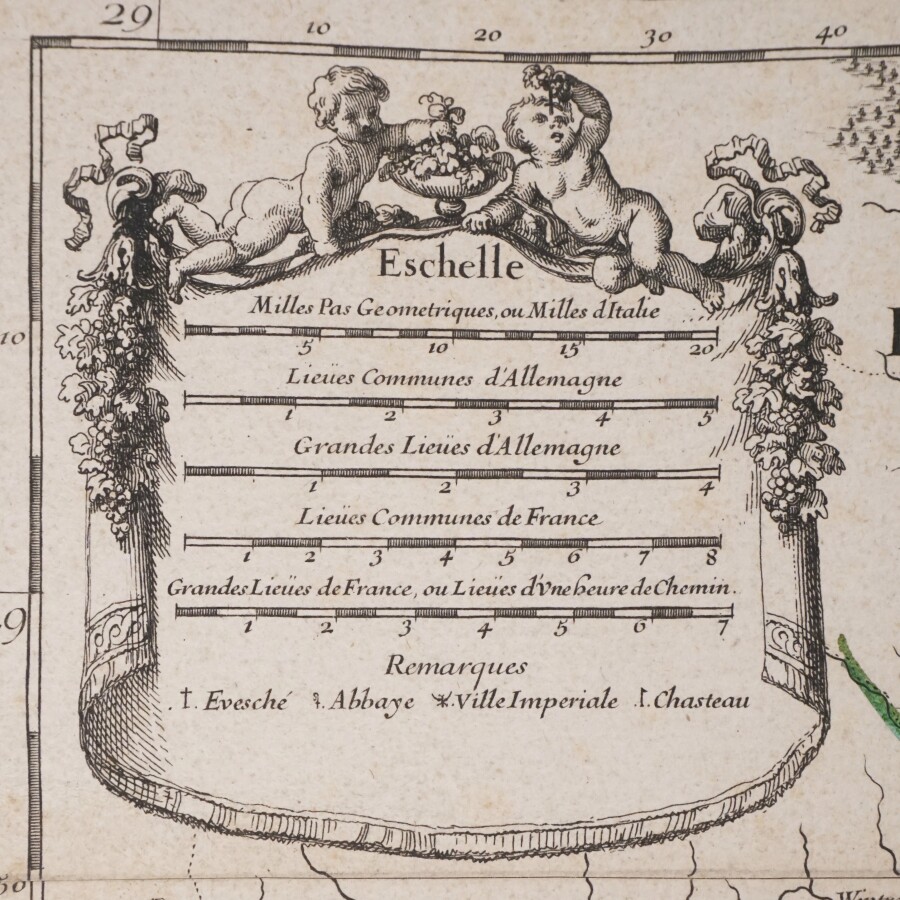 29 10 20 30 40
Eschelle
Milles Pas Geometriques, ou Milles d'Italie
5 10 15 20
10
Lieües Communes d'Allemagne
1 2 3 4 5
Grandes Lieües d'Allemagne
1 2 3 4
Lieües Communes de France
1 2 3 4 5 6 7 8
Grandes Lieües de France, ou Lieües d'Vne heure de Chemin.
1 2 3 4 5 6 7
Remarques
Evesché Abbaye Ville Imperiale Chasteau
50